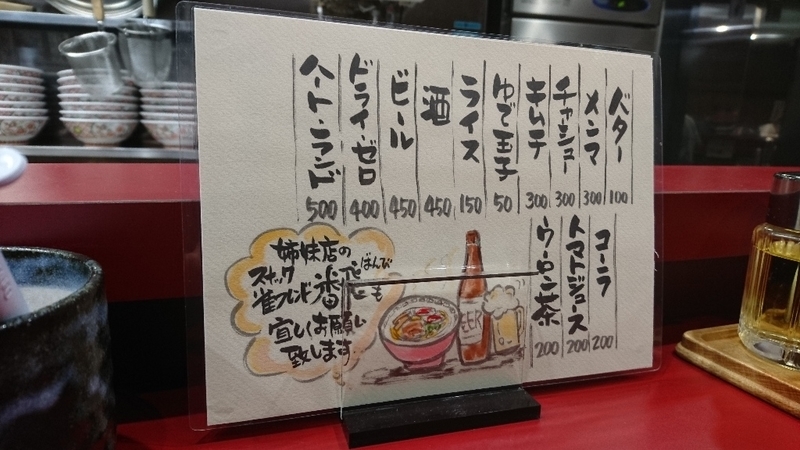 バター 100
メンマ 300
チャーシュー 300
キムチ 300
ゆで玉子 50
ライス 150
酒 450
ビール 450
ドライ・ゼロ 400
ハート・ランド 500
コーラ 200
トマトジュース 200
ウーロン茶 200
姉妹店の
スナック
雀フレンド
ばんび
も
宜しくお願い
致します
BEER